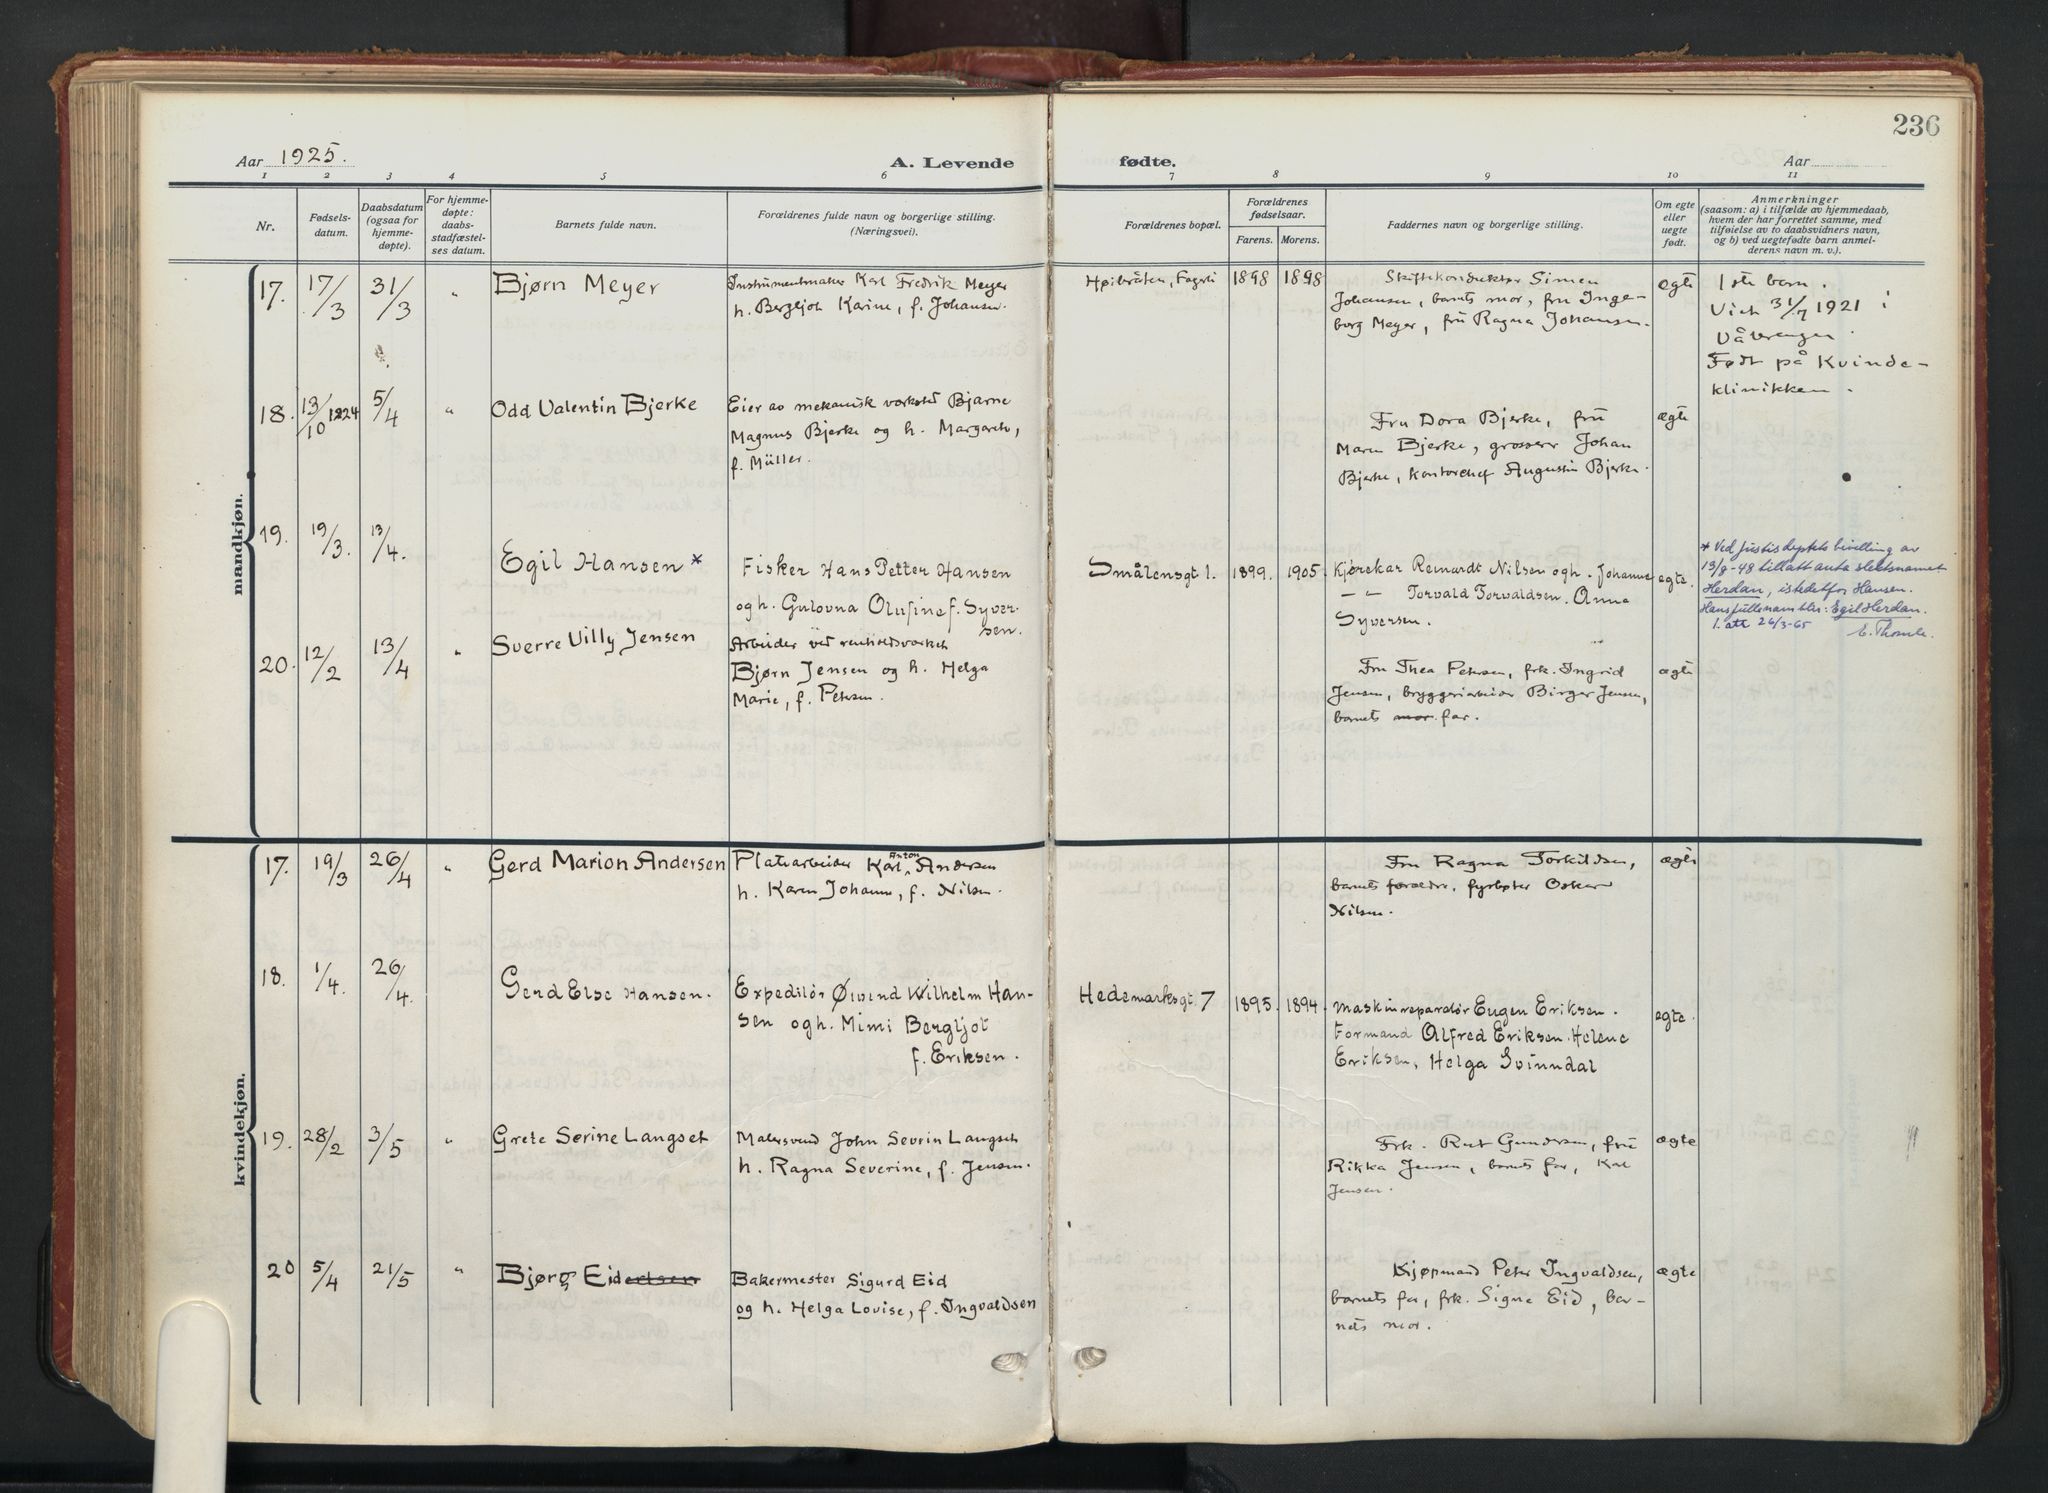 236
Aar 1925.
A. Levende
fødte.
Aar
1 2 3 4 5 6 7 8 9 10 11
Nr.
Fødsels-
datum.
Daabsdatum
(ogsaa for
hjemme-
døpte).
For hjemme-
døpte:
daabs-
stadfæstel-
ses datum.
Barnets fulde navn.
Forældrenes fulde navn og borgerlige stilling.
(Næringsvei).
Forældrenes bopæl.
Forældrenes
fødselsaar.
Farens. Morens.
Faddernes navn og borgerlige stilling.
Om egte
eller
uegte
født.
Anmerkninger
(saasom: a) i tilfælde av hjemmedaab,
hvem der har forrettet samme, med
tilføielse av to daabsvidners navn,
og b) ved uegtefødte barn anmel-
derens navn m. v.).
mandkjøn.
17. 17/3 31/3 " Bjørn Meyer
Instrumentmaker Karl Fredrik Meyer
h. Bergljot Karine, f. Johansen.
Høibråten, 1898 1898
Skiftekonduktør Simen
Johansen, barnets mor, fru Inge-
borg Meyer, fru Ragna Johansen.
ægte
1ste barn.
Viet 31/7 1921 i
Vålerengen.
Født på Kvinde-
klinikken.
18. 13/10 1924 5/4 " Odd Valentin Bjerke
Eier av mekanisk verksted Bjarne
Magnus Bjerke og h. Margarete,
f. Müller.
Fru Dora Bjerke, fru
Maren Bjerke, grosserer Johan
Bjerke, kontorchef Augustin Bjerke.
ægte
19. 19/3. 13/4. Egil Hansen *
Fisker Hans Petter Hansen
og h. Gulovna Olufine f. Syver-
sen.
Smålensgt 1. 1899. 1905.
Kjørekar Reinardt Nilsen og h. Johanne
— " — Torvald Torvaldsen. Anna
Syversen.
egte.
* Ved justisdeptets bevilling av
13/8-48 tillatt anta slektsnavnet
Herdan, istedetfor Hansen.
Hans fulle navn blir: Egil Herdan.
1. att 26/3-65
20. 12/2 13/4 " Sverre Villy Jensen
Arbeider ved renholdsverket
Bjørn Jensen og h. Helga
Marie, f. Petersen.
Fru Thea Petersen, frk. Ingrid
Jensen, bryggeriarbeider Birger Jensen,
barnets mor far.
ægte
kvindekjøn.
17. 19/3 26/4 " Gerd Marion Andersen
Platearbeider Karl Anton Andersen
h. Karen Johanne, f. Nilsen.
Fru Ragna Torkildsen,
barnets forældre, fyrbøter Oskar
Nilsen.
ægte
18. 1/4. 26/4. Gerd Else Hansen.
Expeditør Øivind Wilhelm Han-
sen og h. Mimi Bergljot
f. Eriksen.
Hedemarksgt. 7 1895. 1894.
Maskinreparatør Eugen Eriksen.
Formand Alfred Eriksen. Helene
Eriksen, Helga Svinndal
egte.
19. 28/2 3/5 " Grete Sørine Langset
Malersvend John Severin Langset
h. Ragna Severine, f. Jensen.
Frk. Rut Gundersen, fru
Rikka Jensen, barnets far, Karl
Jensen.
ægte
20 5/4 21/5 " Bjørg Eidertsen
Bakermester Sigurd Eid
og h. Helga Lovise, f. Ingvaldsen
Kjøpmand Peter Ingvaldsen,
barnets far, frk. Signe Eid, bar-
nets mor.
ægte